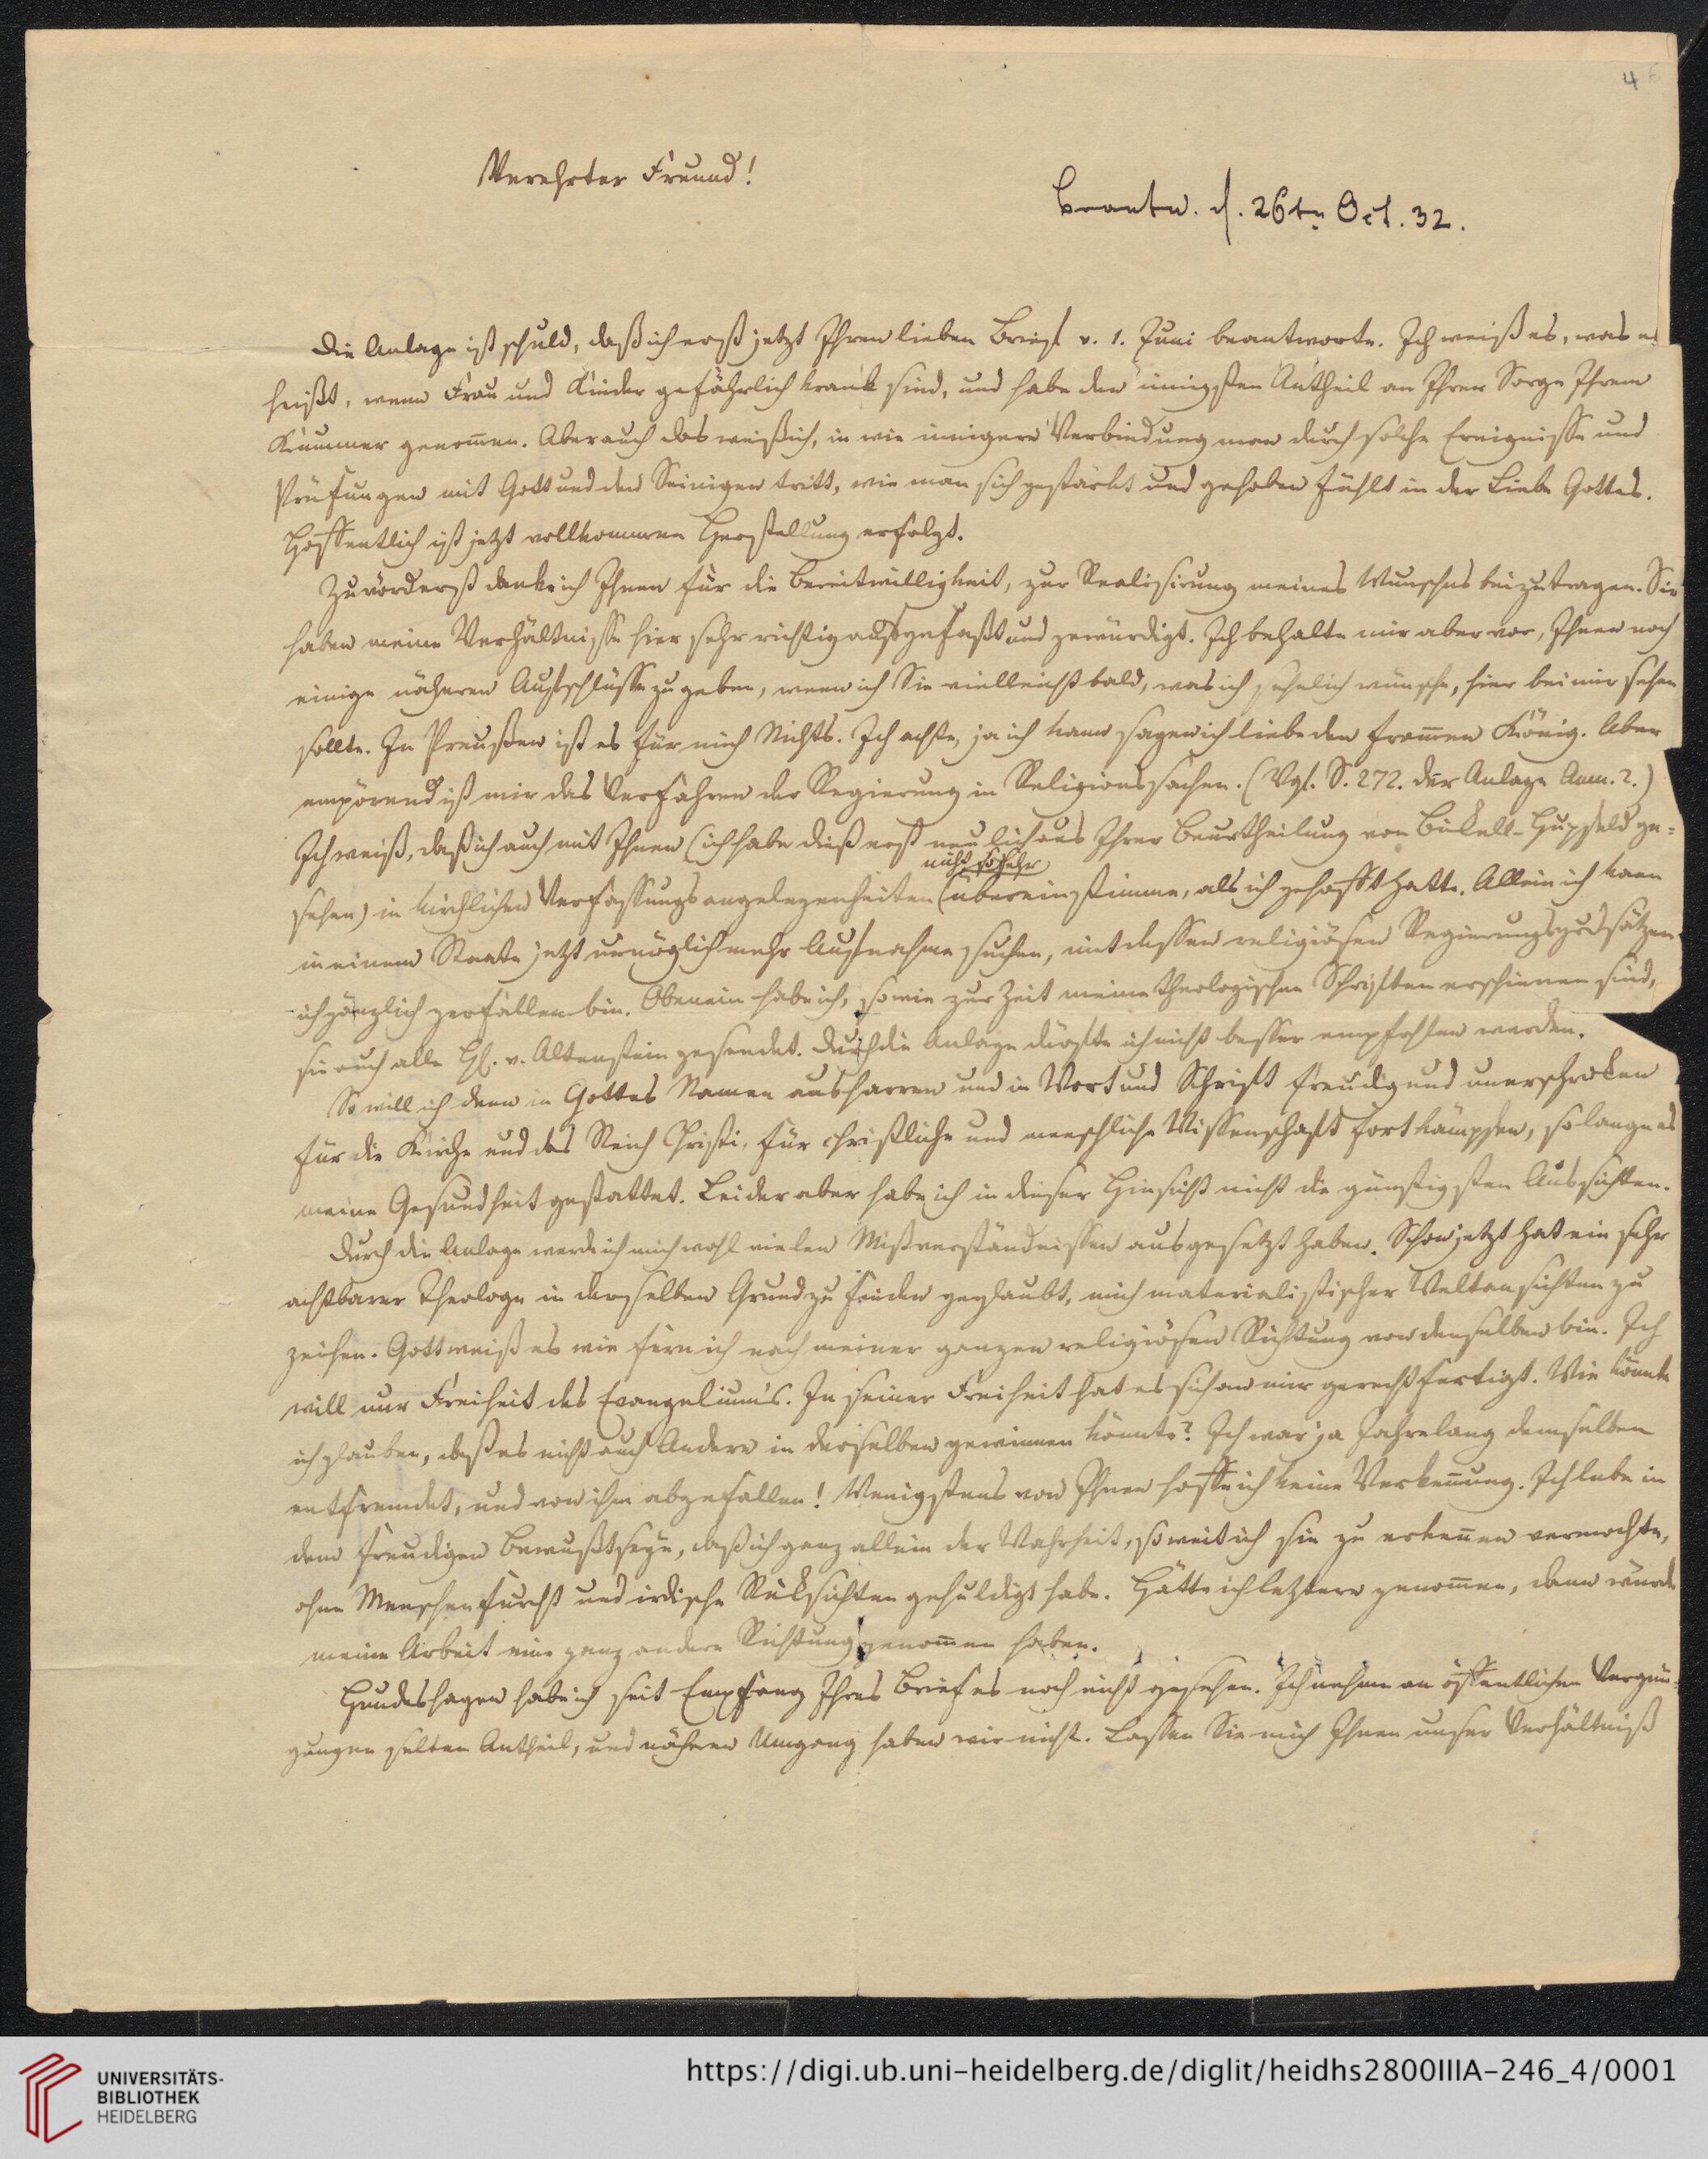 4 6
Verehrter Freund!
Beantw. d. 26tn Oct. 32.
Die Anlage ist schuld, daß ich erst jetzt Ihren lieben Brief v. 1. Juni beantworte. Ich weiß es, was es
heißt, wenn Frau und Kinder gefährlich krank sind, und habe den innigsten Antheil an Ihrer Sorge Ihrem
Kummer genom̄en. Aber auch das weiß ich, in wie innigere Verbindung man durch solche Ereignisse und
Prüfungen mit Gott und den Seinigen tritt, wie man sich gestärkt und gehoben fühlt in der Liebe Gottes.
Hoffentlich ist jetzt vollkommene Herstellung erfolgt.
Zuvörderst danke ich Ihnen für die Bereitwilligkeit, zur Realisirung meines Wunsches beizutragen. Sie
haben meine Verhältnisse hier sehr richtig aufgefaßt und gewürdigt. Ich behalte mir aber vor, Ihnen noch
einige näheren Aufschlüsse zu geben, wenn ich Sie vielleicht bald, was ich sehnlich wünsche, hier bei mir sehen
sollte. In Preußen ist es für mich Nichts. Ich achte, ja ich kann sagen ich liebe den from̄en König. Aber
empörend ist mir das Verfahren der Regierung in Religionssachen. (Vgl. S. 272. der Anlage Anm. 2.)
Ich weiß, daß ich auch mit Ihnen (ich habe dieß erst neulich aus Ihrer Beurtheilung von Bickell-Hupfeld ge-
nicht so sehr
sehen) in kirchlichen Verfassungsangelegenheiten (übereinstimme, als ich gehofft hatte. Allein ich kann
in einem Staate jetzt unmöglich mehr Aufnahme suchen, mit dessen religiösen Regierungsgrdsätzen
ich gänzlich zerfallen bin. Obenein habe ich, so wie zur Zeit meine theologischen Schriften erschienen sind,
sie auch alle H. v. Altenstein gesendet. Durch die Anlage dürfte ich nicht besser empfohlen werden.
So will ich denn in Gottes Namen ausharren und in Wort und Schrift freudig und unerschrocken
für die Kirche und das Reich Christi, für christliche und menschliche Wissenschaft fortkämpfen, so lange es
meine Gesundheit gestattet. Leider aber habe ich in dieser Hinsicht nicht die günstigsten Aussichten.
Durch die Anlage werde ich mich wohl vielen Mißverständnissen ausgesetzt haben. Schon jetzt hat ein sehr
achtbarer Theologe in derselben Grund zu finden geglaubt, mich materialistischer Weltansichten zu
zeihen. Gott weiß es wie fern ich nach meiner ganzen religiösen Richtung von denselben bin. Ich
will nur Freiheit des Evangeliums. In seiner Freiheit hat es sich an mir gerechtfertigt. Wie könnte
ich glauben, daß es nicht auch Andere in derselben gewinnen könnte? Ich war ja Jahrelang demselben
entfremdet, und von ihm abgefallen! Wenigstens von Ihnen hoffe ich keine Verken̄ung. Ich lebe in
dem freudigen Bewußtseyn, daß ich ganz allein der Wahrheit, so weit ich sie zu erken̄en vermochte,
ohne Menschenfurcht und irdische Rücksichten gehuldigt habe. Hätte ich letztere genom̄en, dann würde
meine Arbeit eine ganz andere Richtung genom̄en haben.
Hundeshagen habe ich seit Empfang Ihres Briefes noch nicht gesehen. Ich nehme an öffentlichen Vergnü-
gungen selten Antheil, und näheren Umgang haben wir nicht. Lassen Sie mich Ihnen unser Verhältniß
UNIVERSITÄTS-
BIBLIOTHEK
HEIDELBERG
https://digi.ub.uni-heidelberg.de/diglit/heidhs2800IIIA-246_4/0001